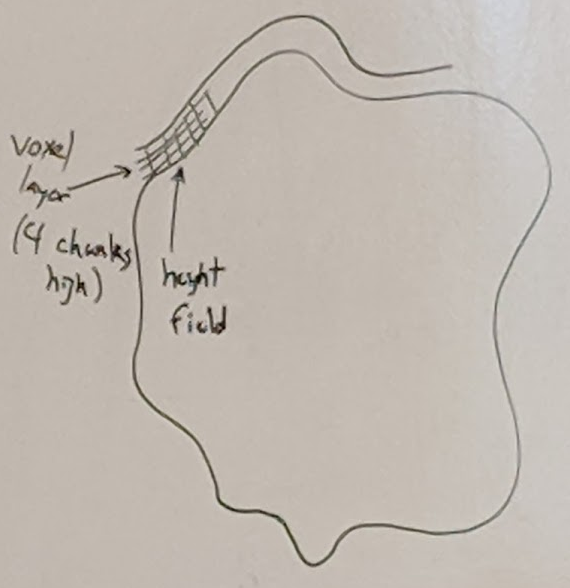 Voxel
layer
(4 chunks
high)
height
field